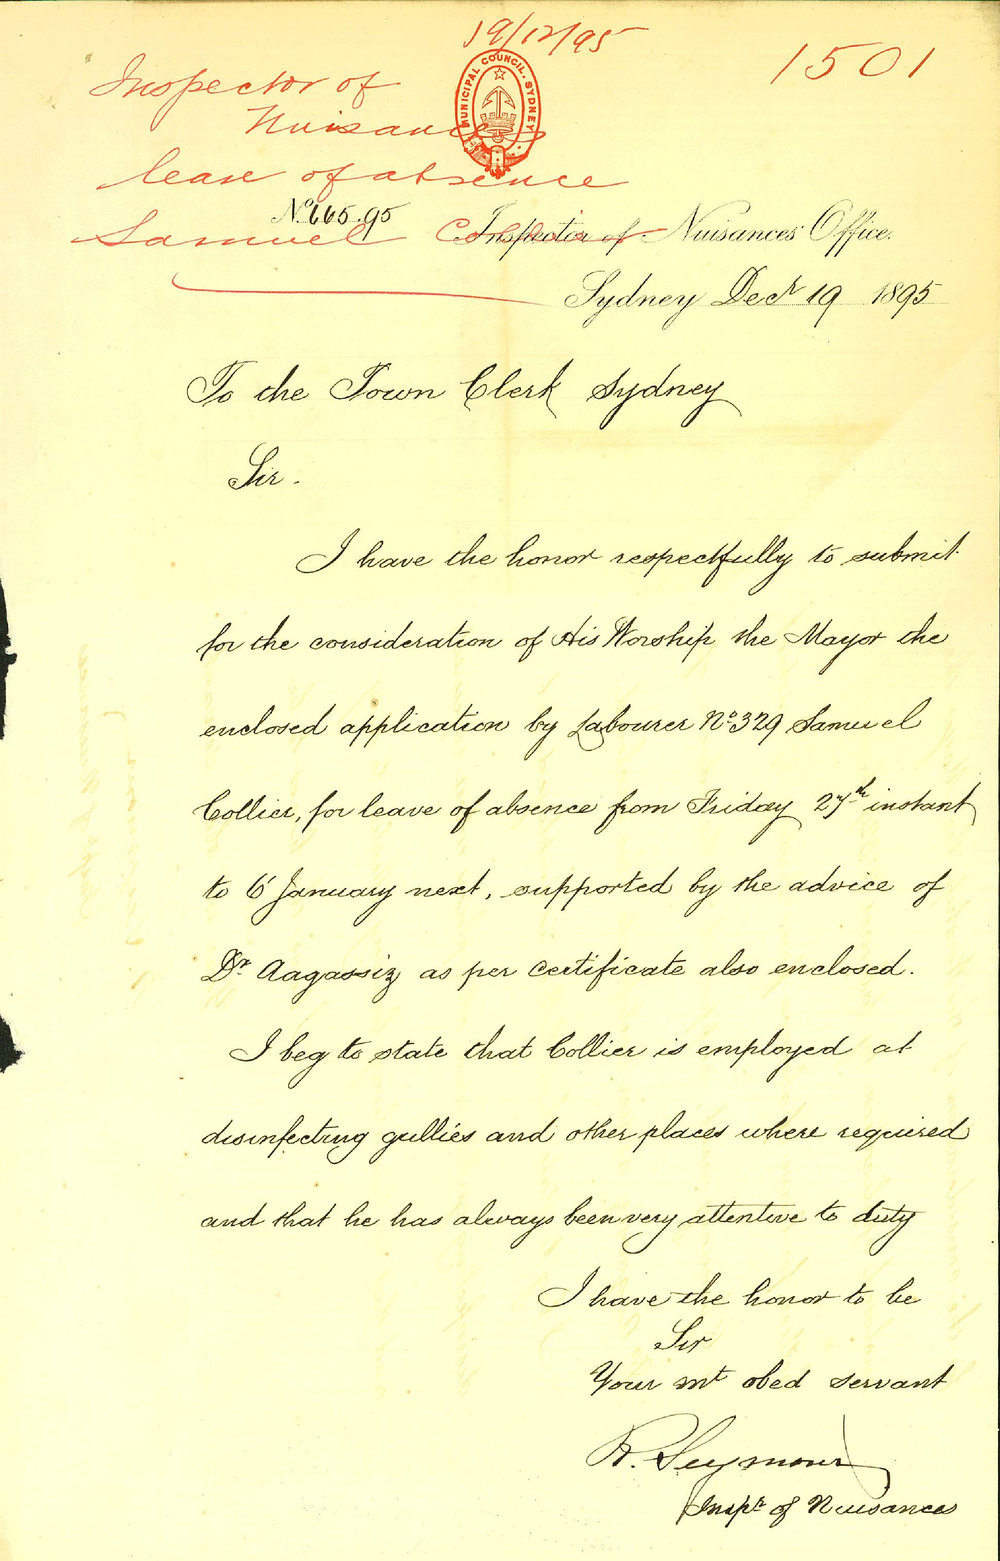 19/12/95
1501
Inspector of
Nuisances
leave of absence
Samuel Collier
MUNICIPAL COUNCIL. SYDNEY
No. 665.95
Inspector of Nuisances' Office.
Sydney Decr 19 1895
To the Town Clerk Sydney
Sir.
I have the honor respectfully to submit
for the consideration of His Worship the Mayor the
enclosed application by Labourer No. 329 Samuel
Collier, for leave of absence from Friday 27th instant
to 6' January next, supported by the advice of
Dr. Aagassiz as per certificate also enclosed.
I beg to state that Collier is employed at
disinfecting gullies and other places where required
and that he has always been very attentive to duty
I have the honor to be
Sir
Your mt obed servant
R. Seymour
Inspr. of Nuisances